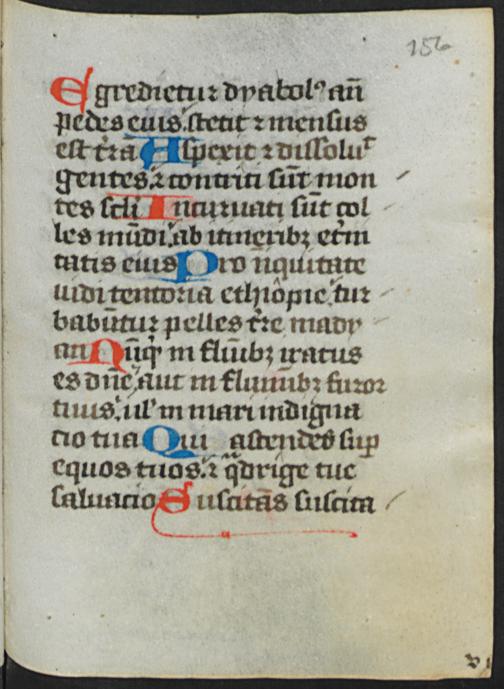 156
Egredietur dyabolꝰ añ
pedes eius. stetit ⁊ mensus
est t̄rā Aspexit ⁊ dissoluᵗ
gentes. ⁊ contriti sūt mon
tes scĺi Incuruati sūt col
les mūdi. ab itineribꝫ et̄ni
tatis eius Pro iīquitate
uidi tentoria ethiopie. tur
babūtur pelles t̄re mady
an Nūqͥ in flūibꝫ iratus
es dñe. aut in fluminībꝫ furor
tuus. ul̓ in mari indigna
cio tua Qui ascendēs suꝑ
equos tuos. ⁊ qᵃdrige tue
saluacio Suscitās suscita